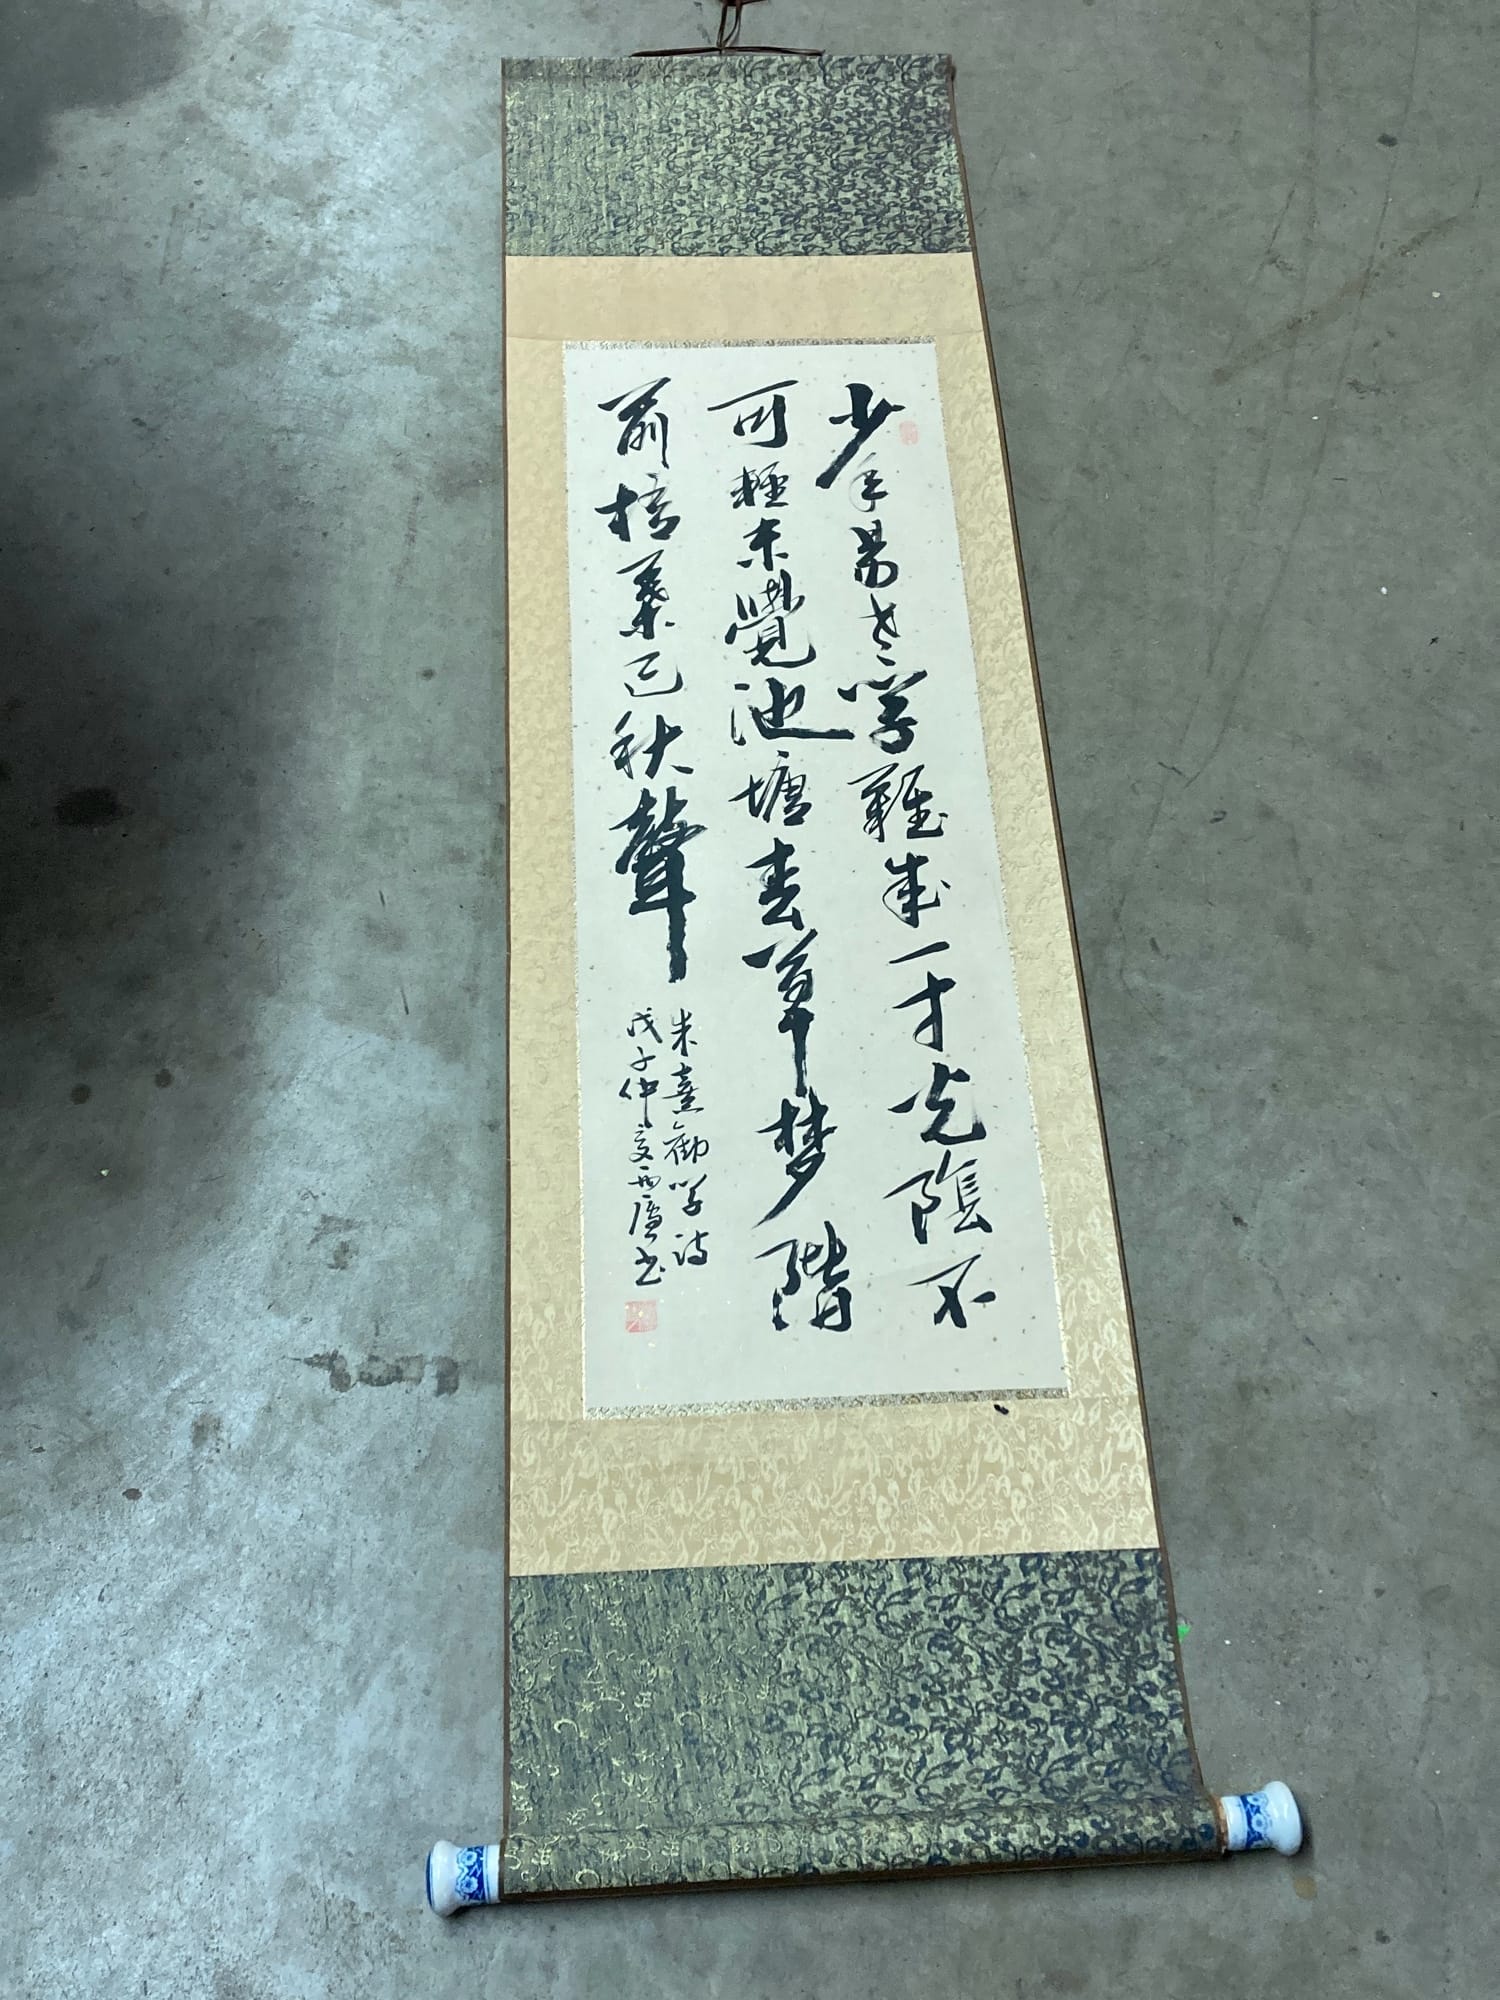 少年易老學難成一寸光陰不
可輕未覺池塘春草夢階
前梧葉已秋聲
朱熹勸學詩
戊子仲夏西廬书